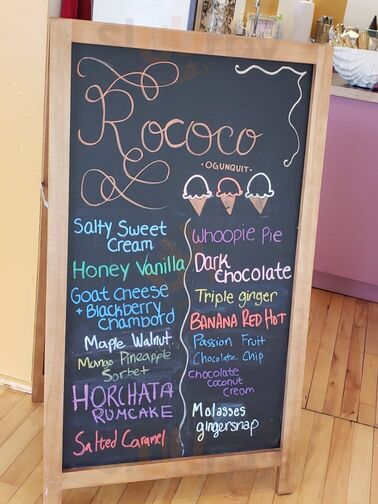 Rococo
·OGUNQUIT·
Salty Sweet
Cream
Honey Vanilla
Goat Cheese
+ Blackberry
Chambord
Maple Walnut
Mango Pineapple
Sorbet
HORCHATA
RUMCAKE
Salted Caramel
Whoopie Pie
Dark
Chocolate
Triple ginger
BANANA RED HOT
Passion Fruit
Chocolate Chip
Chocolate
Coconut
Cream
Molasses
gingersnap